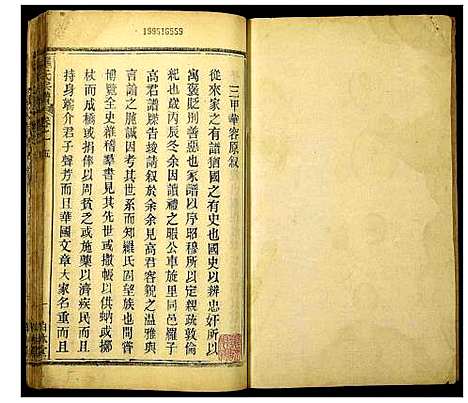 199516559
三甲華容原叙
從來家之有譜猶國之有史也國史以耕忠奸所以
寓褒貶別善惡也家譜以序昭穆所以定親疎敦倫
紀也歲丙辰冬余因讀禮之暇公車旋里同邑羅子
高君譜牒告竣請叙於余見高君容貌之温雅與
言論之肫誠因考其世系而知羅氏固望族也間嘗
博覽全史雜稽羣書見其先世或撒帳以供蚋或擲
杖而成橋或捐俸以周貧乏或施藥以濟疾民而且
持身端介君子聲芳而且華國文章大家名重而且